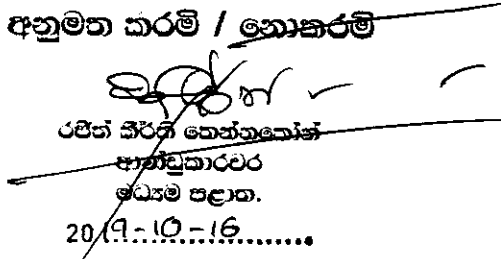 අනුමත කරමි / නොකරමි
රජිත් කීර්ති තෙන්නකෝන්
ආණ්ඩුකාරවර
මධ්‍යම පළාත.
2019-10-16